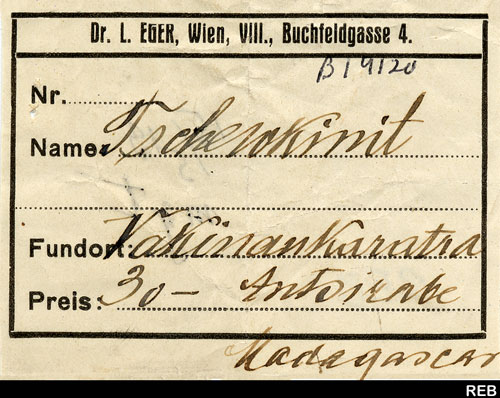 Dr. L. EGER, Wien, VIII., Buchfeldgasse 4.
B19120
Nr.
Name: Tschewkinit
Fundort: Vakinankaratra
Preis: 30 - Antsirabe
Madagascar
REB